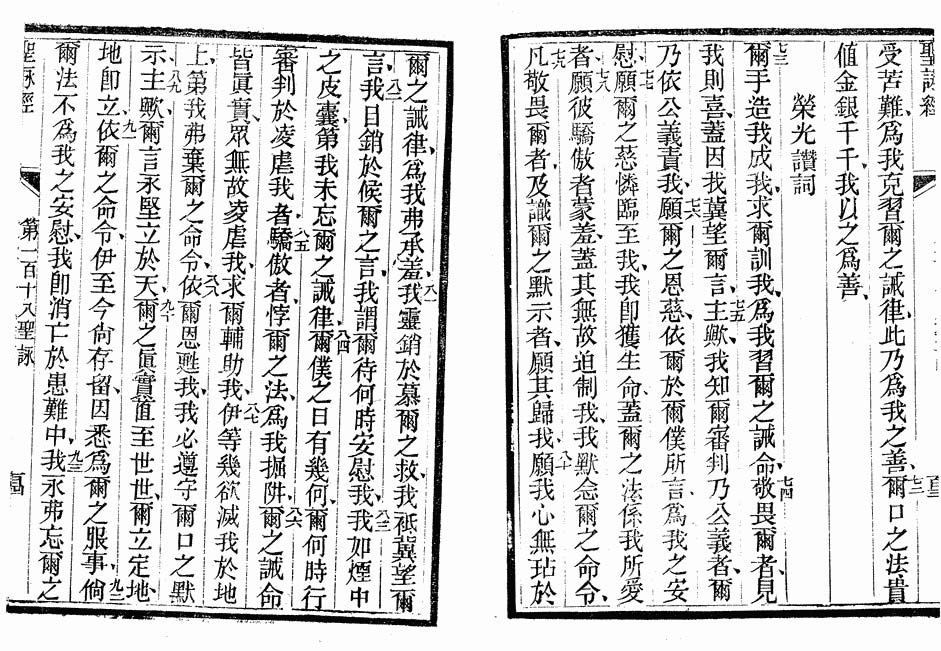 受苦難、爲我克習爾之誡律、此乃爲我之善、七二爾口之法貴
值金銀千千、我以之爲善、
榮光讚詞
七三爾手造我成我、求爾訓我、爲我習爾之誡命、七四敬畏爾者、見
我則喜、蓋因我冀望爾言、七五主歟、我知爾審判乃公義者、爾
乃依公義責我、七六願爾之恩慈、依爾於爾僕所言、爲我之安
慰、七七願爾之慈憐臨至我、我卽獲生命、蓋爾之法係我所愛
者、七八願彼驕傲者蒙羞、蓋其無故迫制我、我默念爾之命令、
七九凡敬畏爾者、及識爾之默示者、願其歸我、八十願我心無玷於
爾之誡律、爲我弗承羞、八一我靈銷於慕爾之救、我祗冀望爾
言、八二我目銷於候爾之言、我謂爾待何時安慰我、八三我如煙中
之皮囊、第我未忘爾之誡律、八四爾僕之日有幾何、爾何時行
審判於凌虐我者、八五驕傲者悖爾之法、爲我掘阱、八六爾之誡命
皆眞實、眾無故凌虐我、求爾輔助我、八七伊等幾欲滅我於地
上、第我弗棄爾之命令、八八依爾恩甦我、我必遵守爾口之默
示、八九主歟、爾言永堅立於天、九十爾之眞實直至世世、爾立定地、
地卽立、九一依爾之命令、伊至今尙存留、因悉爲爾之服事、九二倘
爾法不爲我之安慰、我卽消亡於患難中、九三我永弗忘爾之
聖詠經
第一百十八聖詠